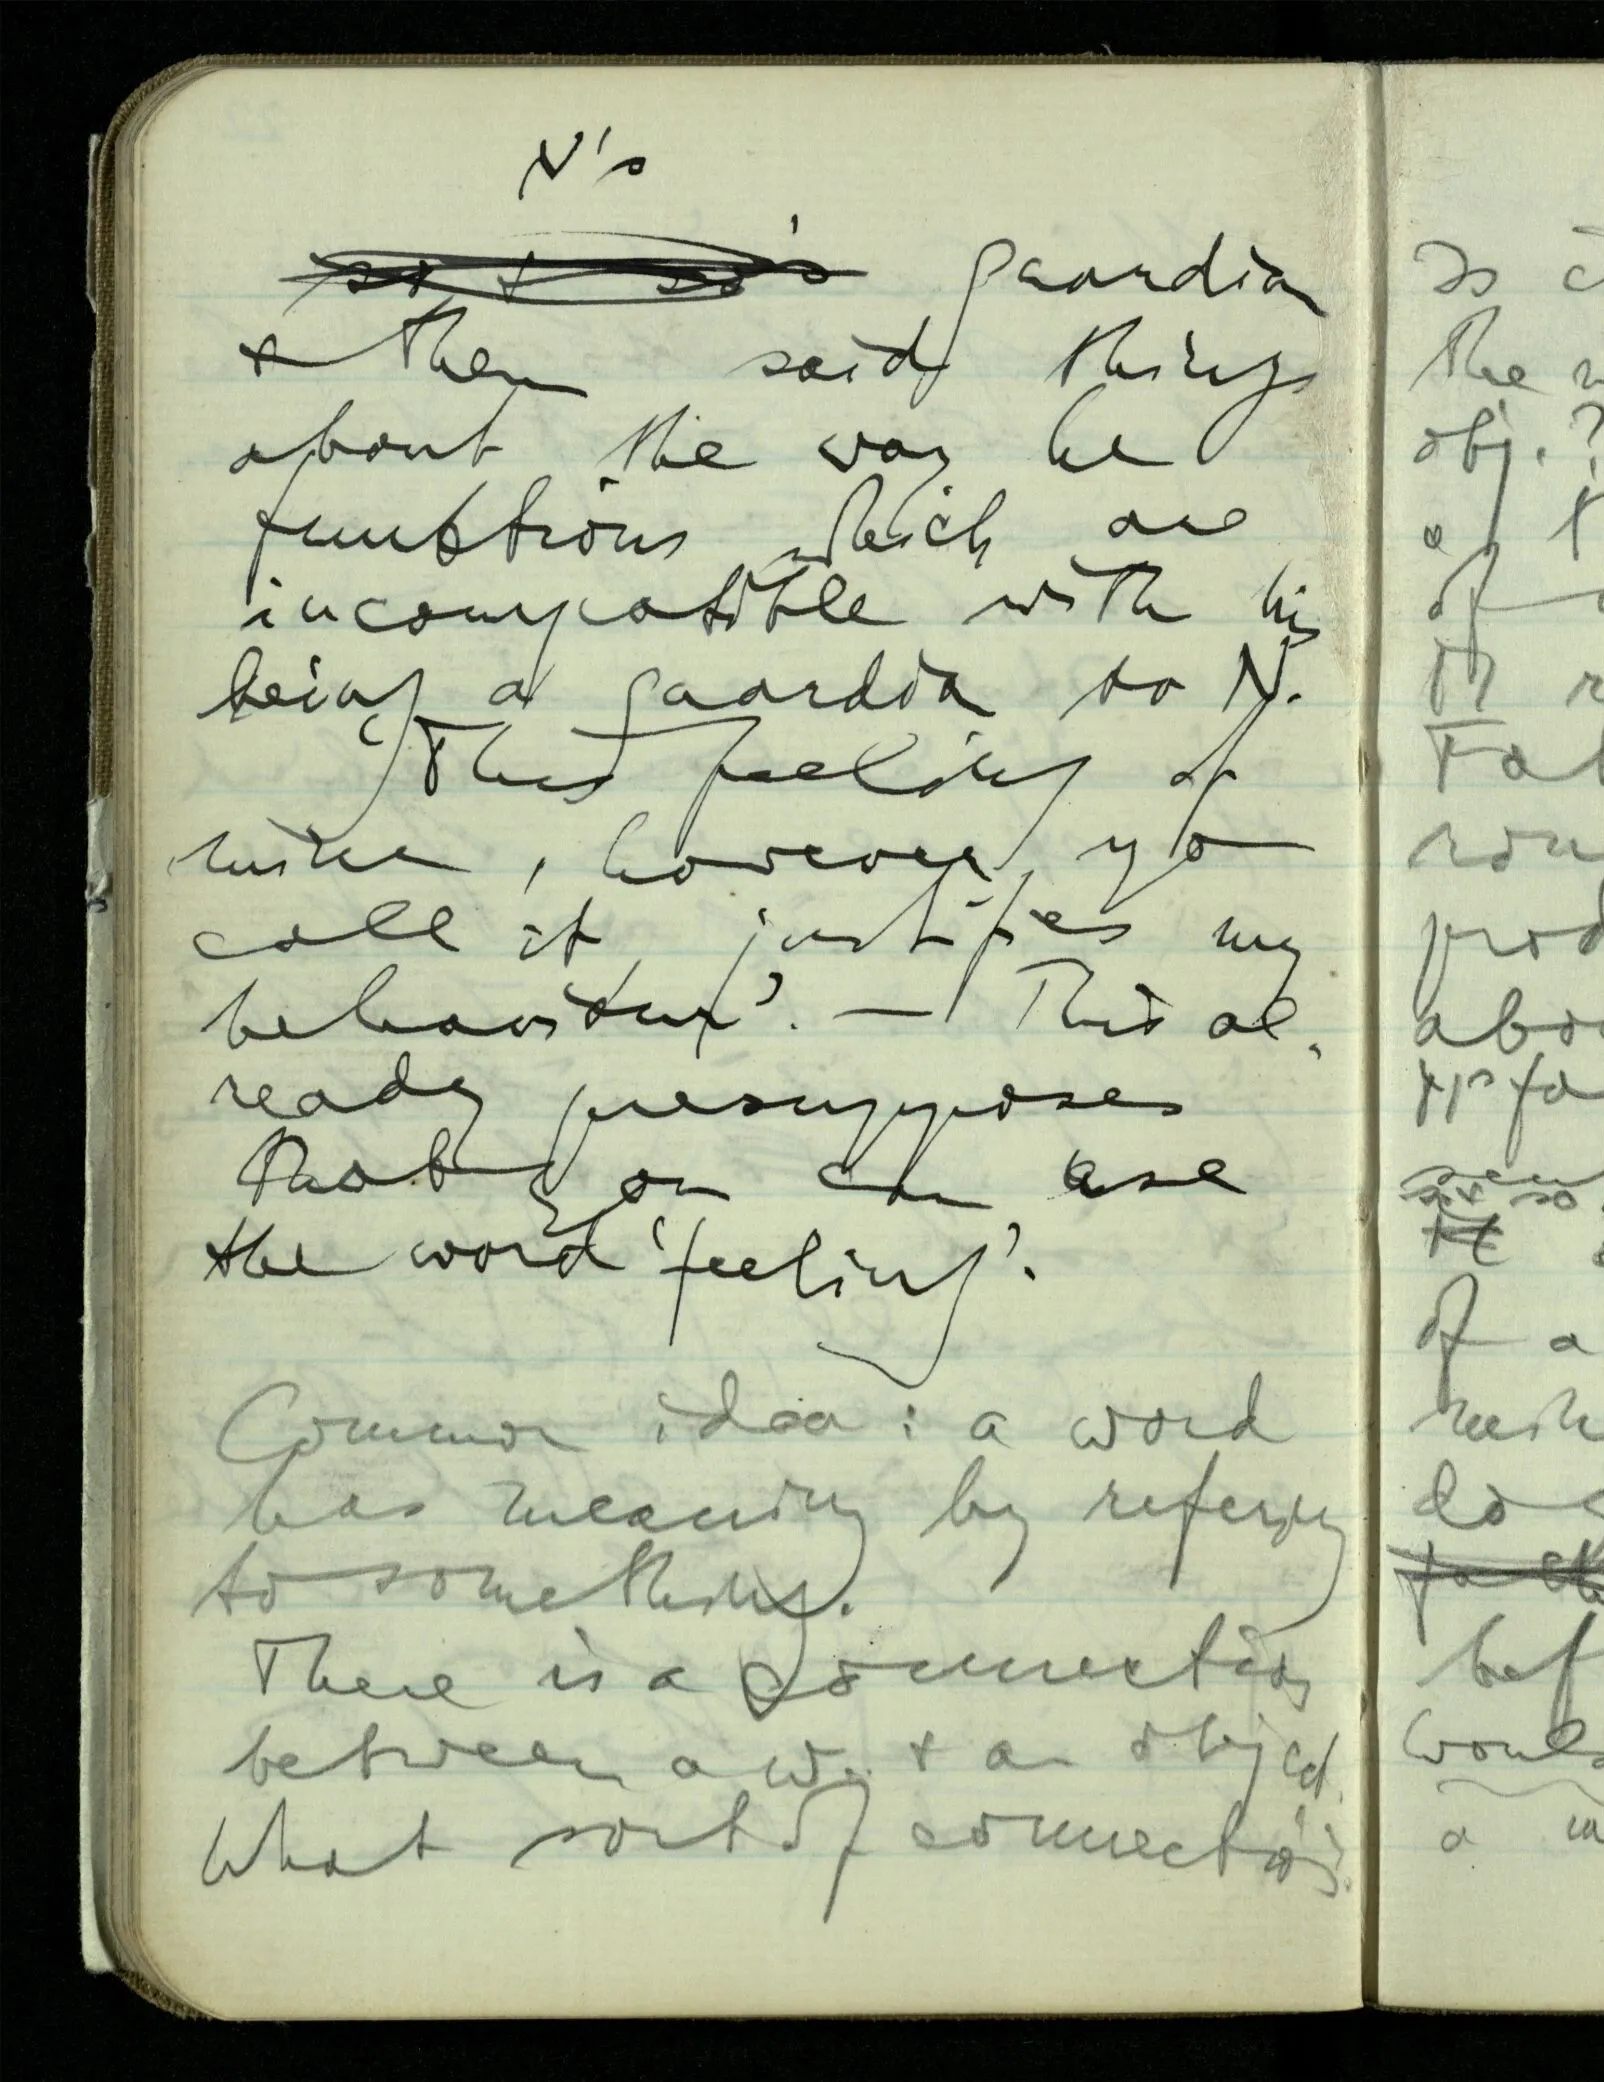 N's
so & so's guardian
& then said things
about the way he
functions which are
incompatible with his
being a guardian to N.
'This feeling of
mine, however, you
call it, justifies my
behaviour'. — This al-
ready presupposes
that you can use
the word 'feeling'.
Common idea: a word
has meaning by referring
to something.
There is a connection
between a w. & an object.
What sort of connection?
is
the
obj.?
a
of
of a
do
would
a